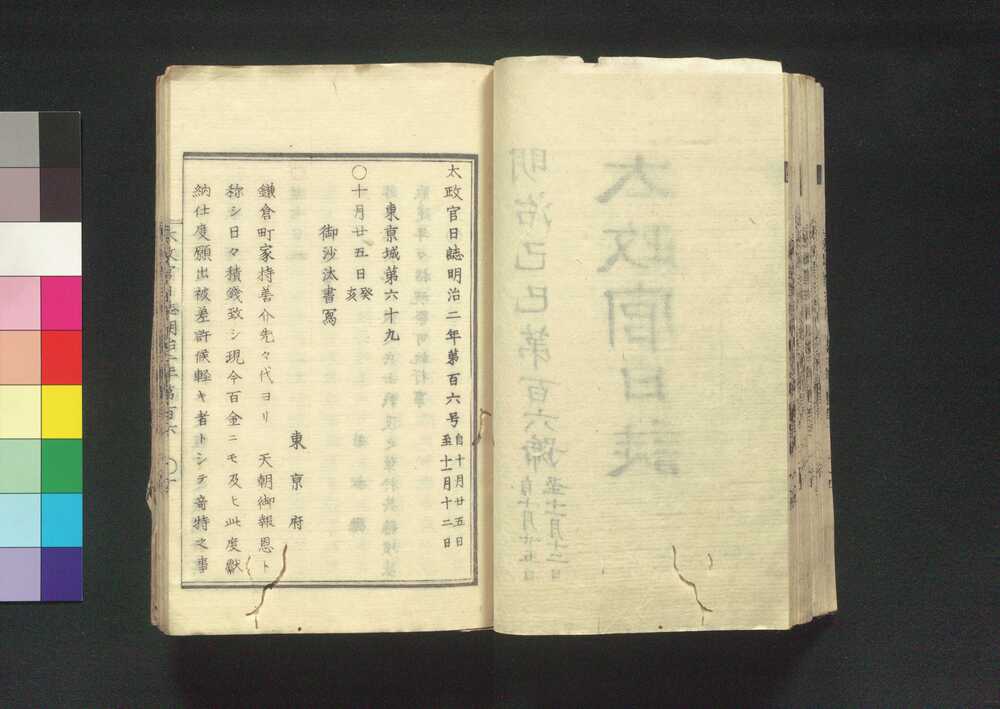 太政官日誌明治二年第百六号自十月廿五日至十一月十二日
東京城第六十九
〇十月廿五日癸亥
御沙汰書寫
東亰府
鎌倉町家持善介先々代ヨリ 天朝御報恩ト
称シ日々積錢致シ現今百金ニモ及ヒ此度獻
納仕度願出被差許候軽キ者トシテ奇特之事
太政官日誌明治二年第百六 〇一
太政官日誌
明治己巳第百六號自十月廿五日至十一月十二日